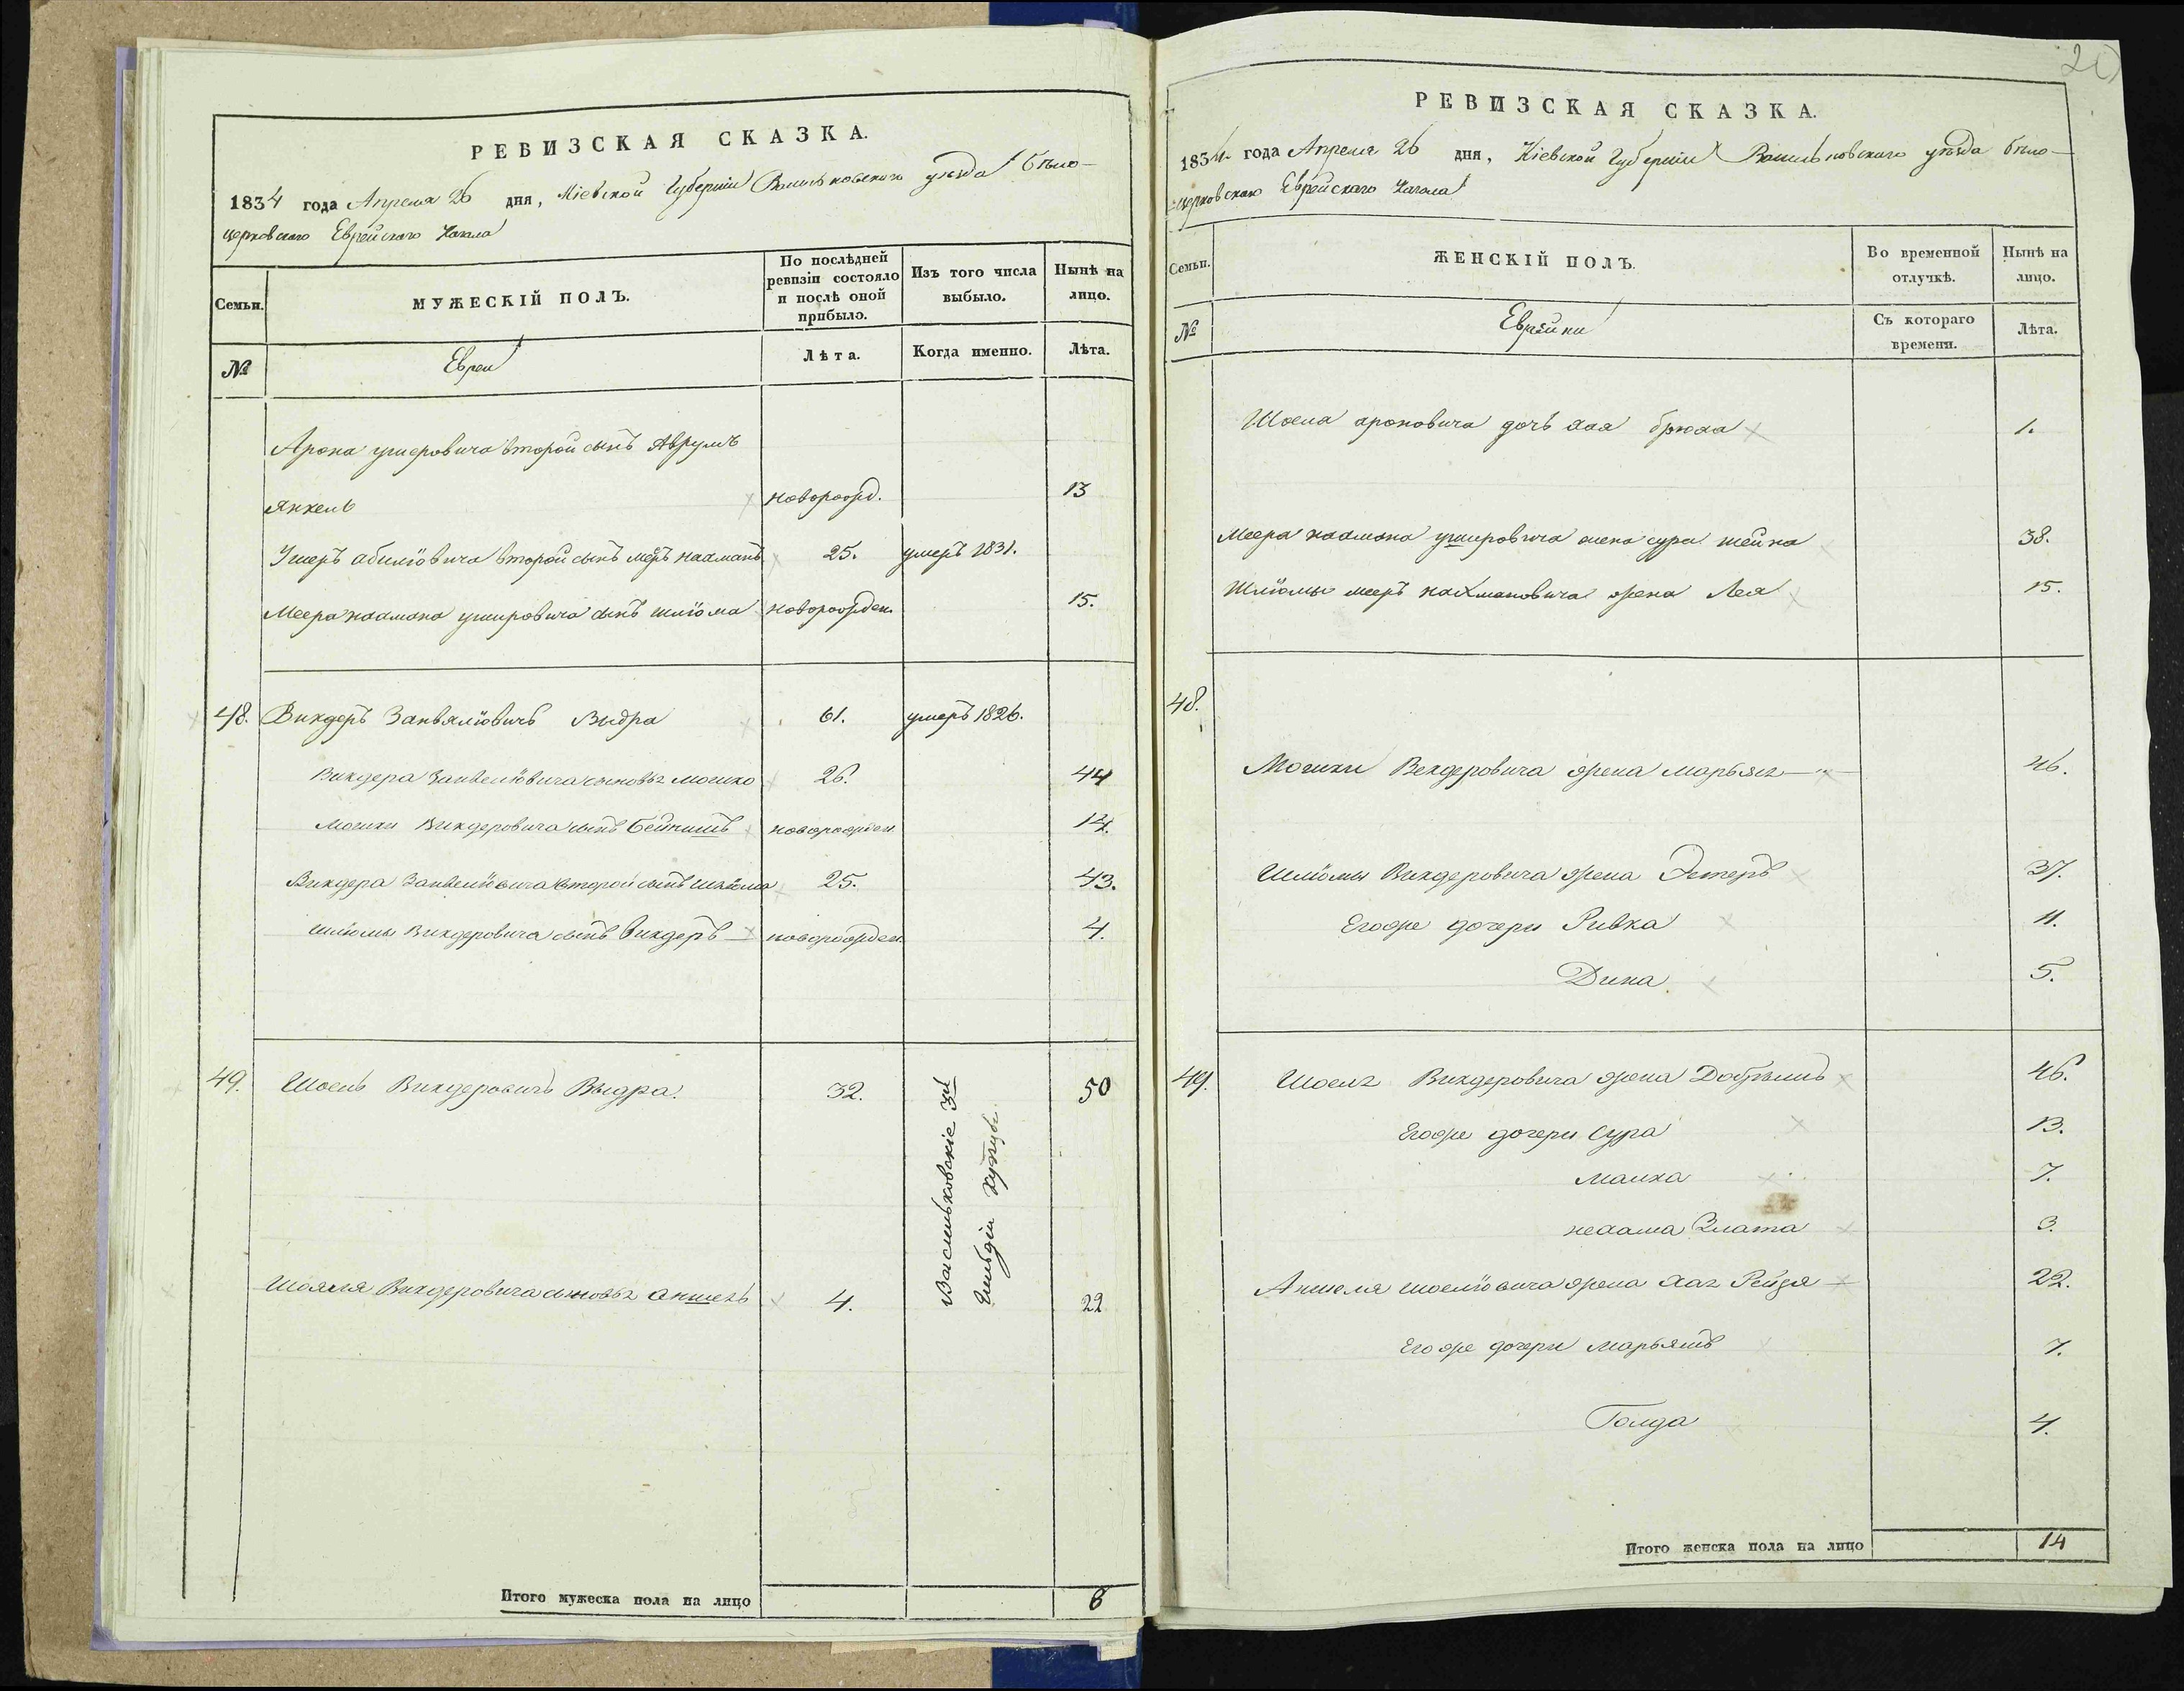 РЕВИЗСКАЯ СКАЗКА.
1834 года Апреля 26 дня, Кіевской Губерніи Васильковскаго уѣзда Бѣло-
церковскаго Еврейскаго Кагала
Семьи. МУЖЕСКІЙ ПОЛЪ. По послѣдней ревизіи состояло и послѣ оной прибыло. Изъ того числа выбыло. Нынѣ на лицо.
№ Евреи Лѣта. Когда именно. Лѣта.
Арона ушеровича второй сынъ Аврумъ
янкель новорожд. 13
Ушеръ абиліовича второй сынъ меръ нахманъ 25. умеръ 1831.
Меера нахмана ушеровича сынъ шліома новорожден. 15.
48. Викдеръ Занвяліовичъ Выдра 61. умеръ 1826.
Викдера Занвеліовича сыновья мошко 26. 44
Мошки Викдеровича сынъ Бейнишъ новорожден. 14.
Викдера Занвеліовича второй сынъ шліома 25. 43.
шліомы Викдеровича сынъ Викдеръ новорожден. 4.
49. Шоель Викдеровичъ Выдра. 32. 50
Васильковскіе 3й
Гильдіи купцы.
Шояля Викдеровича сыновья аншель 4. 22
Итого мужеска пола на лицо 8
20
РЕВИЗСКАЯ СКАЗКА.
1834 года Апреля 26 дня, Кіевской Губерніи Васильковскаго уѣзда бѣло-
церковскаго Еврейскаго Кагала
Семьи. ЖЕНСКІЙ ПОЛЪ. Во временной отлучкѣ. Нынѣ на лицо.
№ Еврейки Съ котораго времени. Лѣта.
Шоеля ароновича дочь хая брюха 1.
Меера нахмана ушировича жена сура шейна 38.
Шліомы меръ нахмановича жена Лея 15.
48.
Мошки Векдеровича жена марьяся 46.
Шліомы Викдеровича жена Эстеръ 37.
Егоже дочери Ривка 11.
Дина 5.
49. Шоеля Викдеровича жена Добрышъ 46.
Егоже дочери Сура 13.
малка 7.
нехама Злата 3.
Аншеля шоеліовича жена хая Рейзя 22.
Егоже дочери марьяшъ 7.
Голда 4.
Итого женска пола на лицо 14